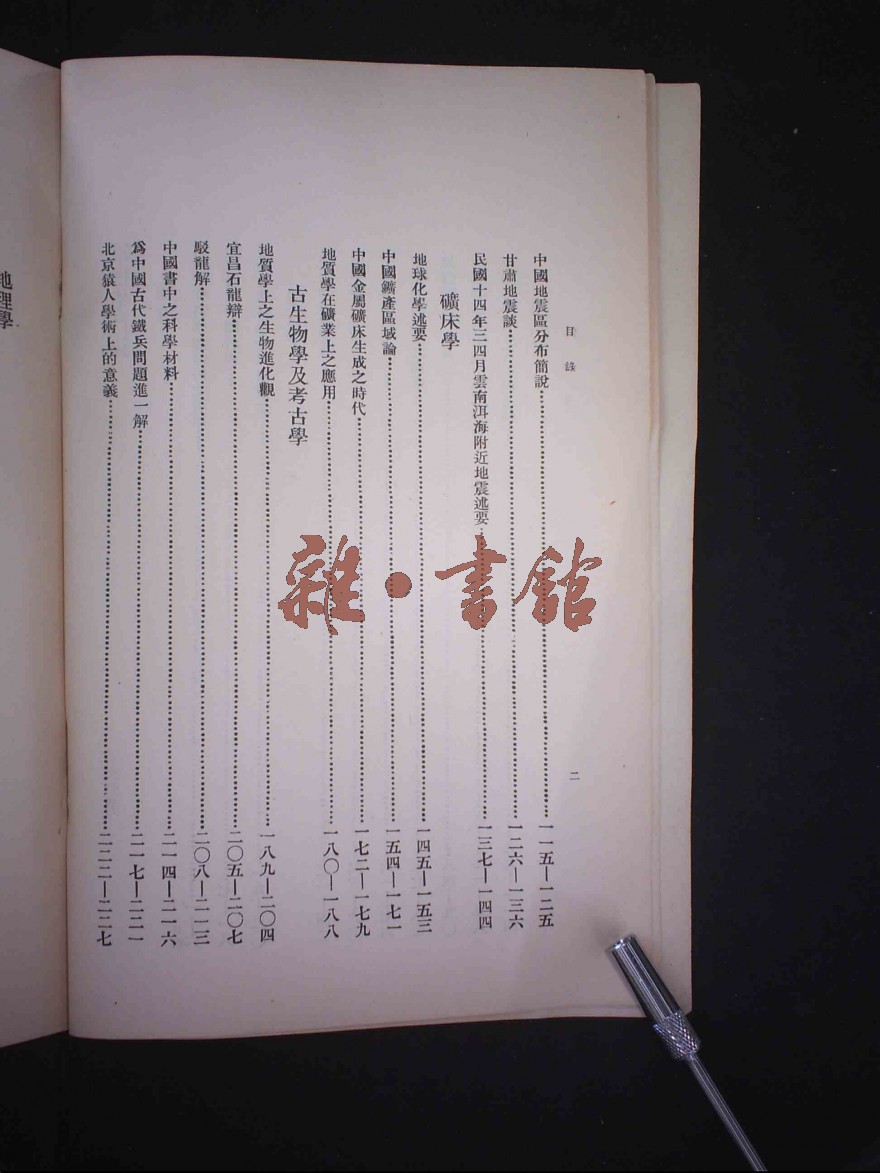 目錄
二
中國地震區分布簡說……一一五—一二五
甘肅地震談……一二六—一三六
民國十四年三四月雲南洱海附近地震述要……一三七—一四四
礦床學
地球化學述要……一四五—一五三
中國鑛產區域論……一五四—一七一
中國金屬礦床生成之時代……一七二—一七九
地質學在礦業上之應用……一八〇—一八八
古生物學及考古學
地質學上之生物進化觀……一八九—二〇四
宜昌石龍辯……二〇五—二〇七
駁龍解……二〇八—二一三
中國書中之科學材料……二一四—二一六
爲中國古代鐵兵問題進一解……二一七—二二一
北京猿人學術上的意義……二二二—二二七
地理學
雜·書館